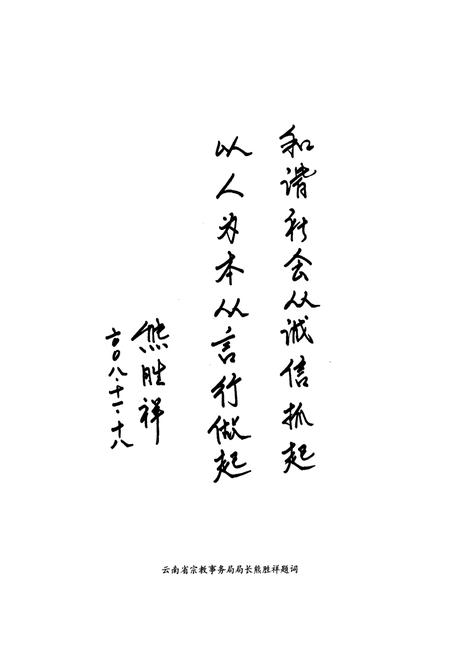 和谐社会从诚信抓起
以人为本从言行做起
熊胜祥
二〇〇八·十一·十八
云南省宗教事务局局长熊胜祥题词